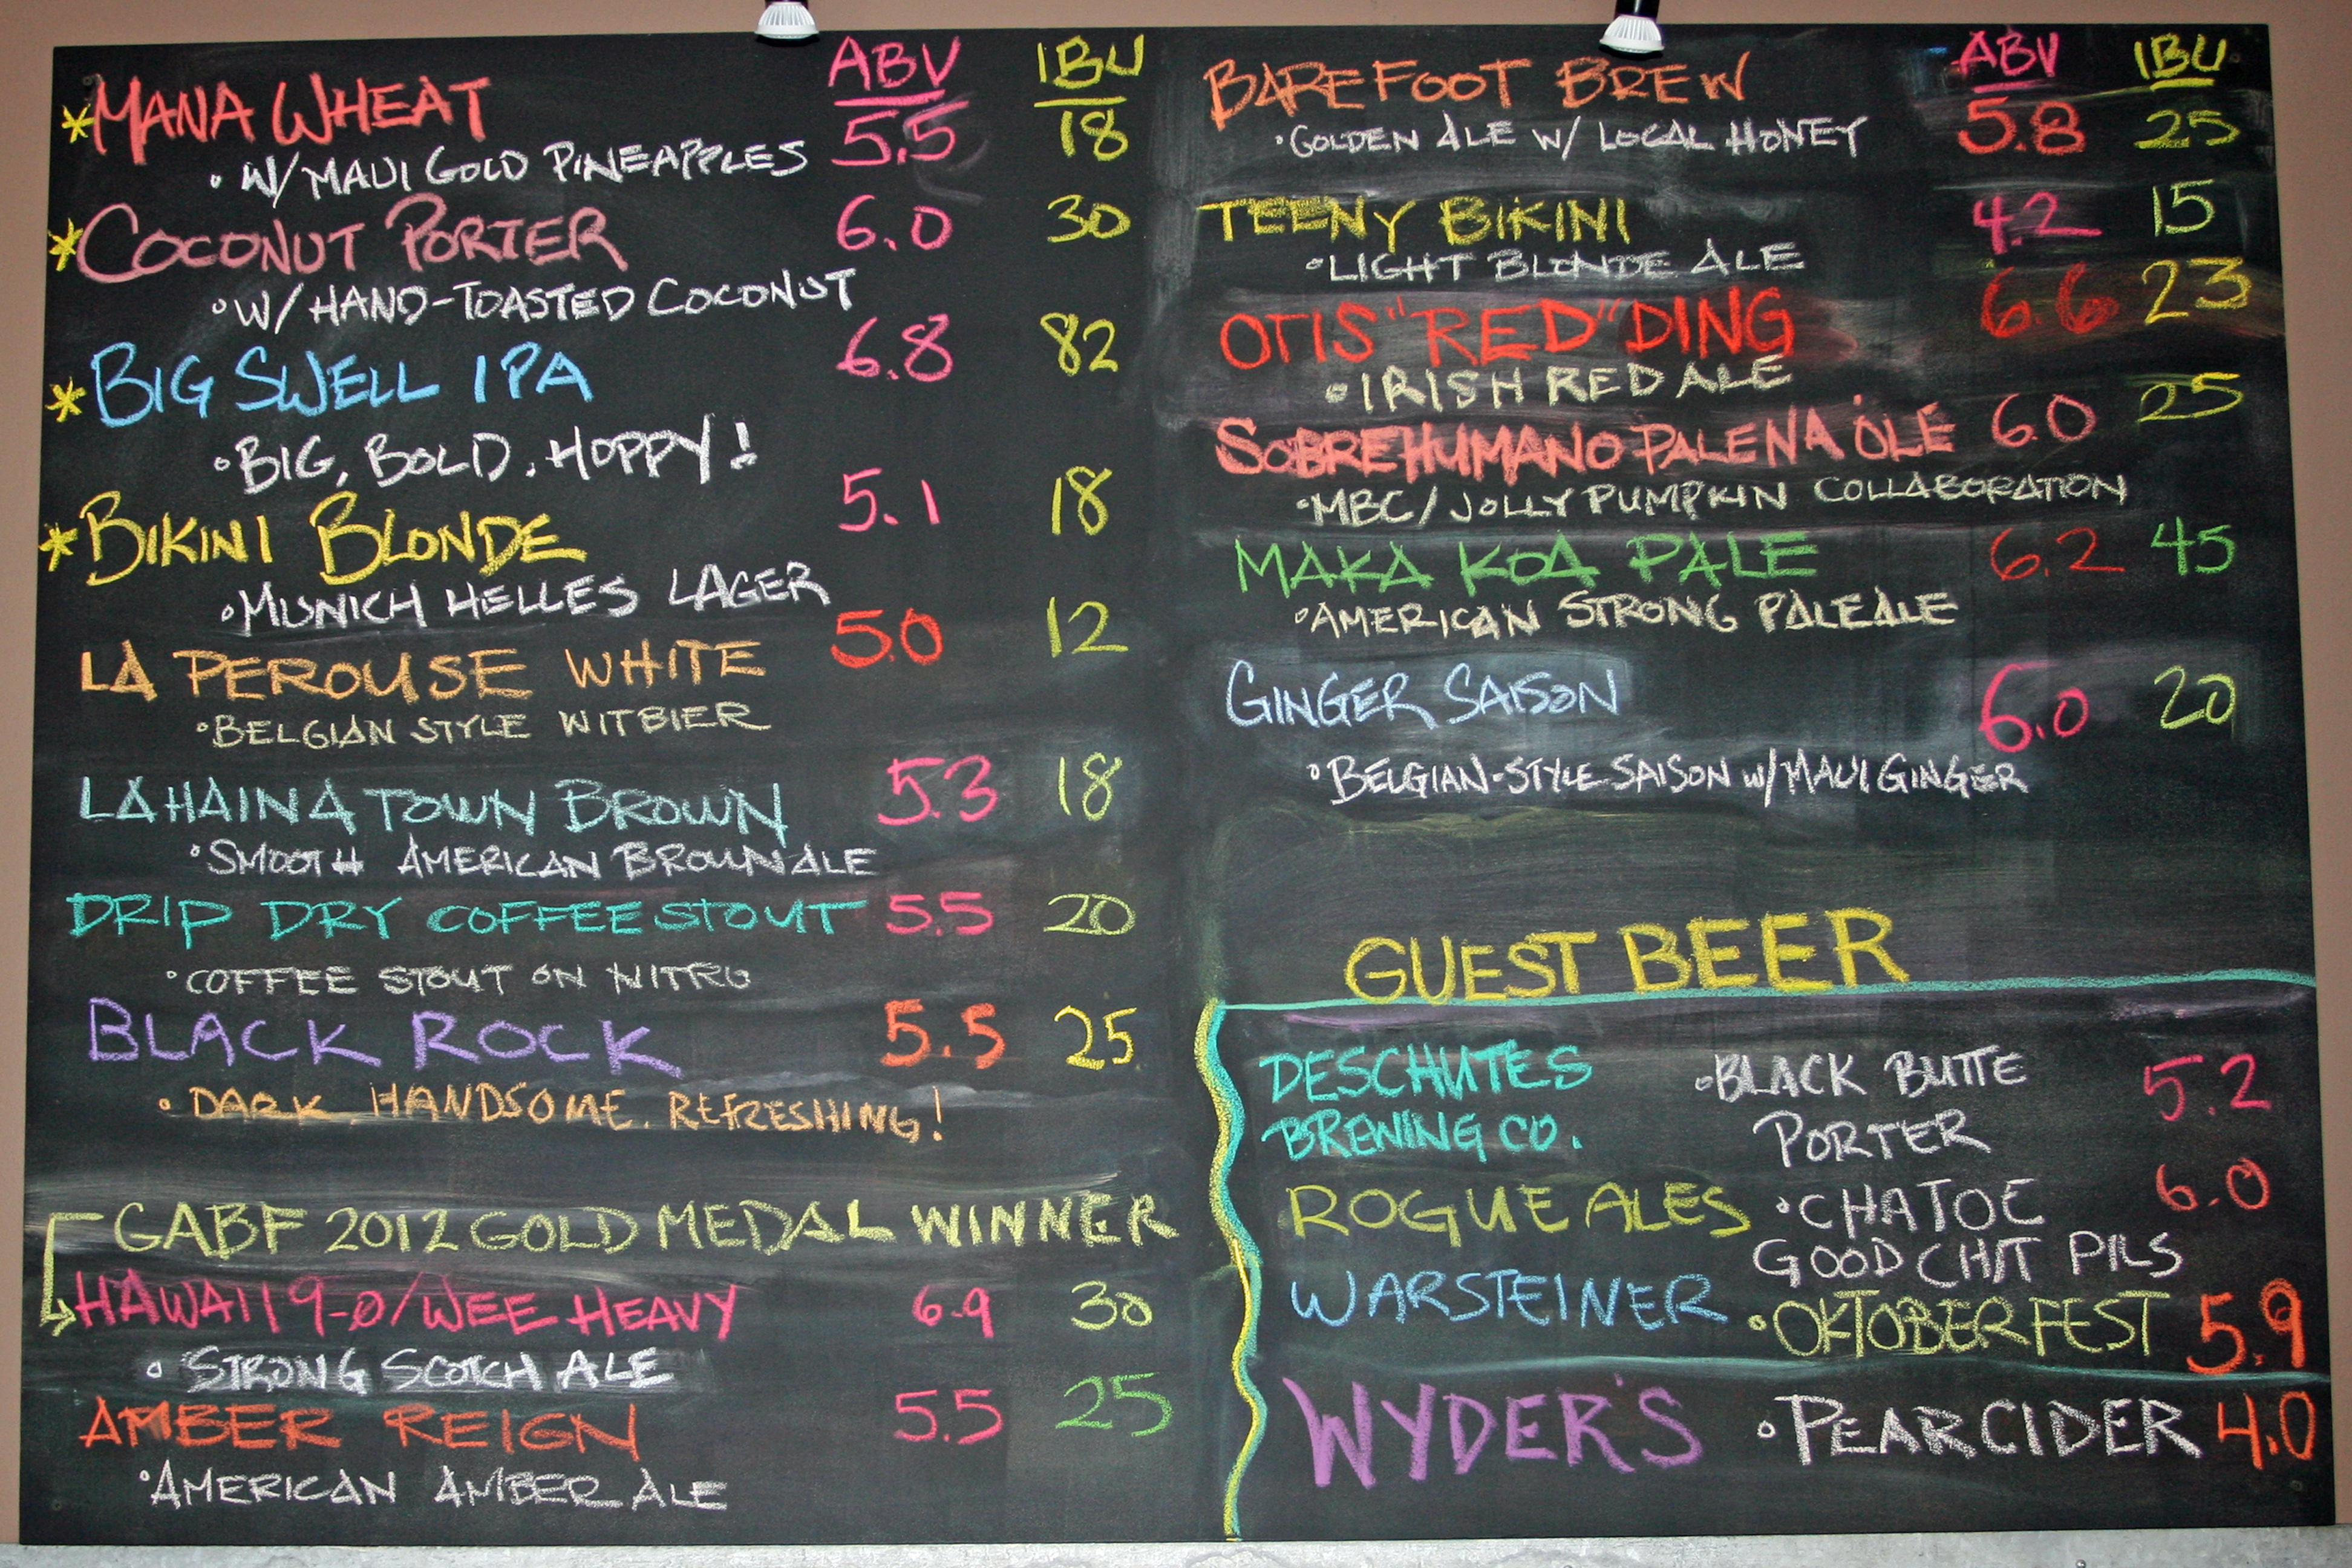 ABV IBU
*MANA WHEAT 5.5 18
• W/ MAUI GOLD PINEAPPLES
*COCONUT PORTER 6.0 30
• W/ HAND-TOASTED COCONUT
*BIG SWELL IPA 6.8 82
• BIG, BOLD, HOPPY!
*BIKINI BLONDE 5.1 18
• MUNICH HELLES LAGER
LA PEROUSE WHITE 5.0 12
• BELGIAN STYLE WITBIER
LAHAINA TOWN BROWN 5.3 18
• SMOOTH AMERICAN BROWN ALE
DRIP DRY COFFEE STOUT 5.5 20
• COFFEE STOUT ON NITRO
BLACK ROCK 5.5 25
• DARK, HANDSOME, REFRESHING!
GABF 2012 GOLD MEDAL WINNER
HAWAII 9-0/WEE HEAVY 6.9 30
• STRONG SCOTCH ALE
AMBER REIGN 5.5 25
• AMERICAN AMBER ALE
ABV IBU
BAREFOOT BREW 5.8 25
• GOLDEN ALE W/ LOCAL HONEY
TEENY BIKINI 4.2 15
• LIGHT BLONDE ALE
OTIS "RED" DING 6.6 23
• IRISH RED ALE
SOBREHUMANO PALENA 'OLE 6.0 25
• MBC/JOLLY PUMPKIN COLLABORATION
MAKA KOA PALE 6.2 45
• AMERICAN STRONG PALE ALE
GINGER SAISON 6.0 20
• BELGIAN-STYLE SAISON W/ MAUI GINGER
GUEST BEER
DESCHUTES • BLACK BUTTE 5.2
BREWING CO. PORTER
ROGUE ALES • CHATOE 6.0
GOOD CHIT PILS
WARSTEINER • OKTOBERFEST 5.9
WYDER'S • PEAR CIDER 4.0